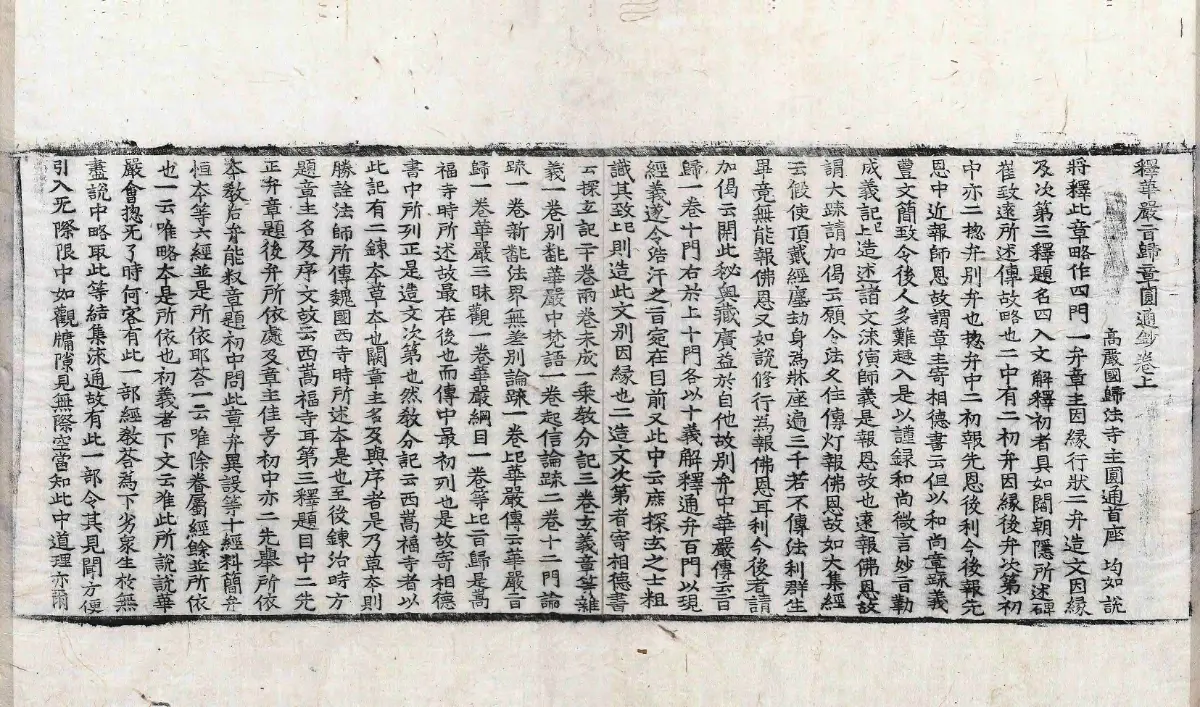 釋華嚴旨歸章圓通鈔卷上
高麗國歸法寺主圓通首座 均如說
將釋此章略作四門一弁章主因緣行狀二弁造文因緣
及次第三釋題名四入文解釋初者具如閻朝隱所述碑
崔致遠所述傳故略也二中有二初弁因緣後弁次第初
中亦二揔弁別弁也揔弁中二初報先恩後利今後報先
恩中近報師恩故謂章主寄相德書云但以和尚章踈義
豊文簡致令後人多難趣入是以謹録和尚微言妙旨勒
成義記記上造述諸文沫演師義是報恩故也遠報佛恩故
謂大踈請加偈云願令法久住傳灯報佛恩故如大集經
云假使頂戴經塵劫身為牀座遍三千若不傳法利群生
畢竟無能報佛恩又如說修行為報佛恩耳利今後者請
加偈云開此秘奥藏廣益於自他故別弁中華嚴傳云旨
歸一卷十門右於上十門各以十義解釋通弁百門以現
經義遂令浩汗之旨宛在目前又此中云庶探玄之士粗
識其致上則造此文別因緣也二造文次第者寄相德書
云探玄記二十卷兩卷未成一乗教分記三卷玄義章等雜
義一卷別飜華嚴中梵語一卷起信論踈二卷十二門論
踈一卷新飜法界無差別論踈一卷上華嚴傳云華嚴旨
歸一卷華嚴三昧觀一卷華嚴綱目一卷等上旨歸是嵩
福寺時所述故最在後也而傳中最初列也是故寄相德
書中所列正是造文次第也然教分記云西嵩福寺者以
此記有二鍊本草本也闕章主名及與序者是乃草本則
勝詮法師所傳魏國西寺時所述本是也至後鍊治時方
題章主名及序文故云西嵩福寺耳第三釋題目中二先
正弁章題後弁所依處及章主住号初中亦二先舉所依
本教后弁能叙章題初中問此章弁異說等十經料簡弁
恒本等六經並是所依耶荅一云唯除眷屬經餘並所依
也一云唯略本是所依也初義者下文云准此所說說華
嚴會揔无了時何容有此一部經教荅為下劣衆生於無
盡說中略取此等結集沫通故有此一部令其見聞方便
引入无際限中如觀牗隙見無際空當知此中道理亦爾